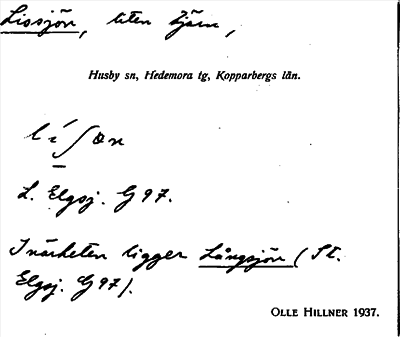 Lissjön, liten tjärn,
Husby sn, Hedemora tg, Kopparbergs län.
lı́ʃøn
L. Elgsj. G 97.
I närheten ligger Långsjön (St.
Elgsj. G 97).
OLLE HILLNER 1937.